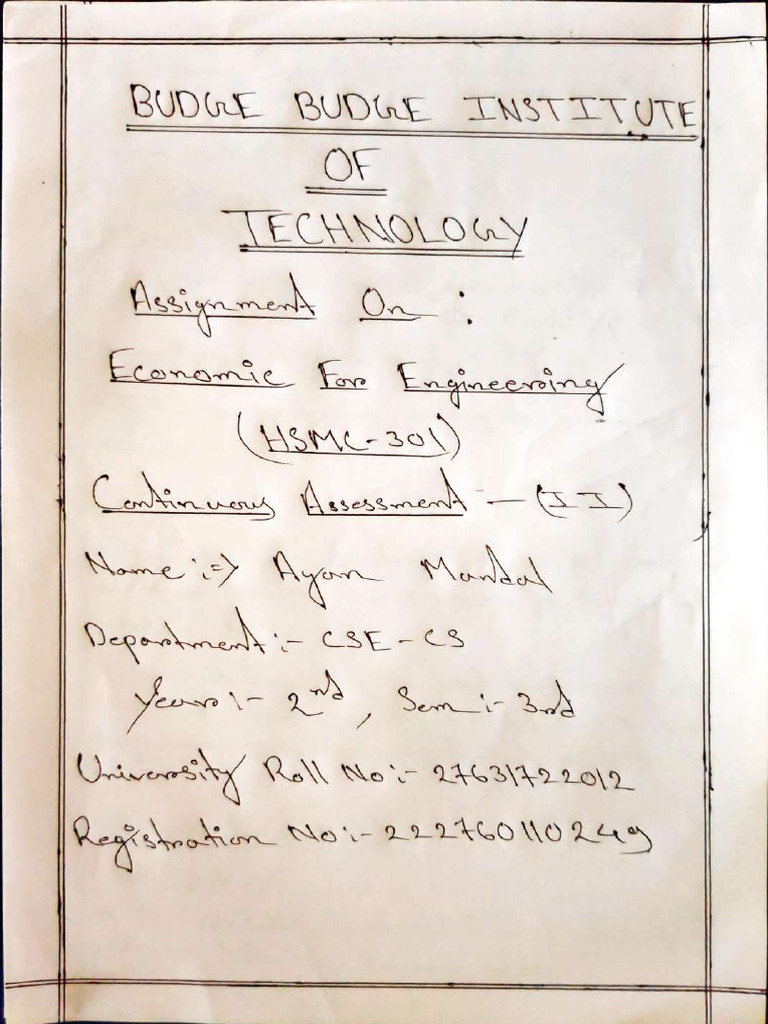 BUDGE BUDGE INSTITUTE
OF
TECHNOLOGY
Assignment On :
Economic For Engineering
(HSMC-301)
Continuous Assessment - (II)
Name :=> Ayan Mandal
Department :- CSE-CS
Year :- 2nd, Sem :- 3rd
University Roll No :- 27631722012
Registration No :- 222760110249